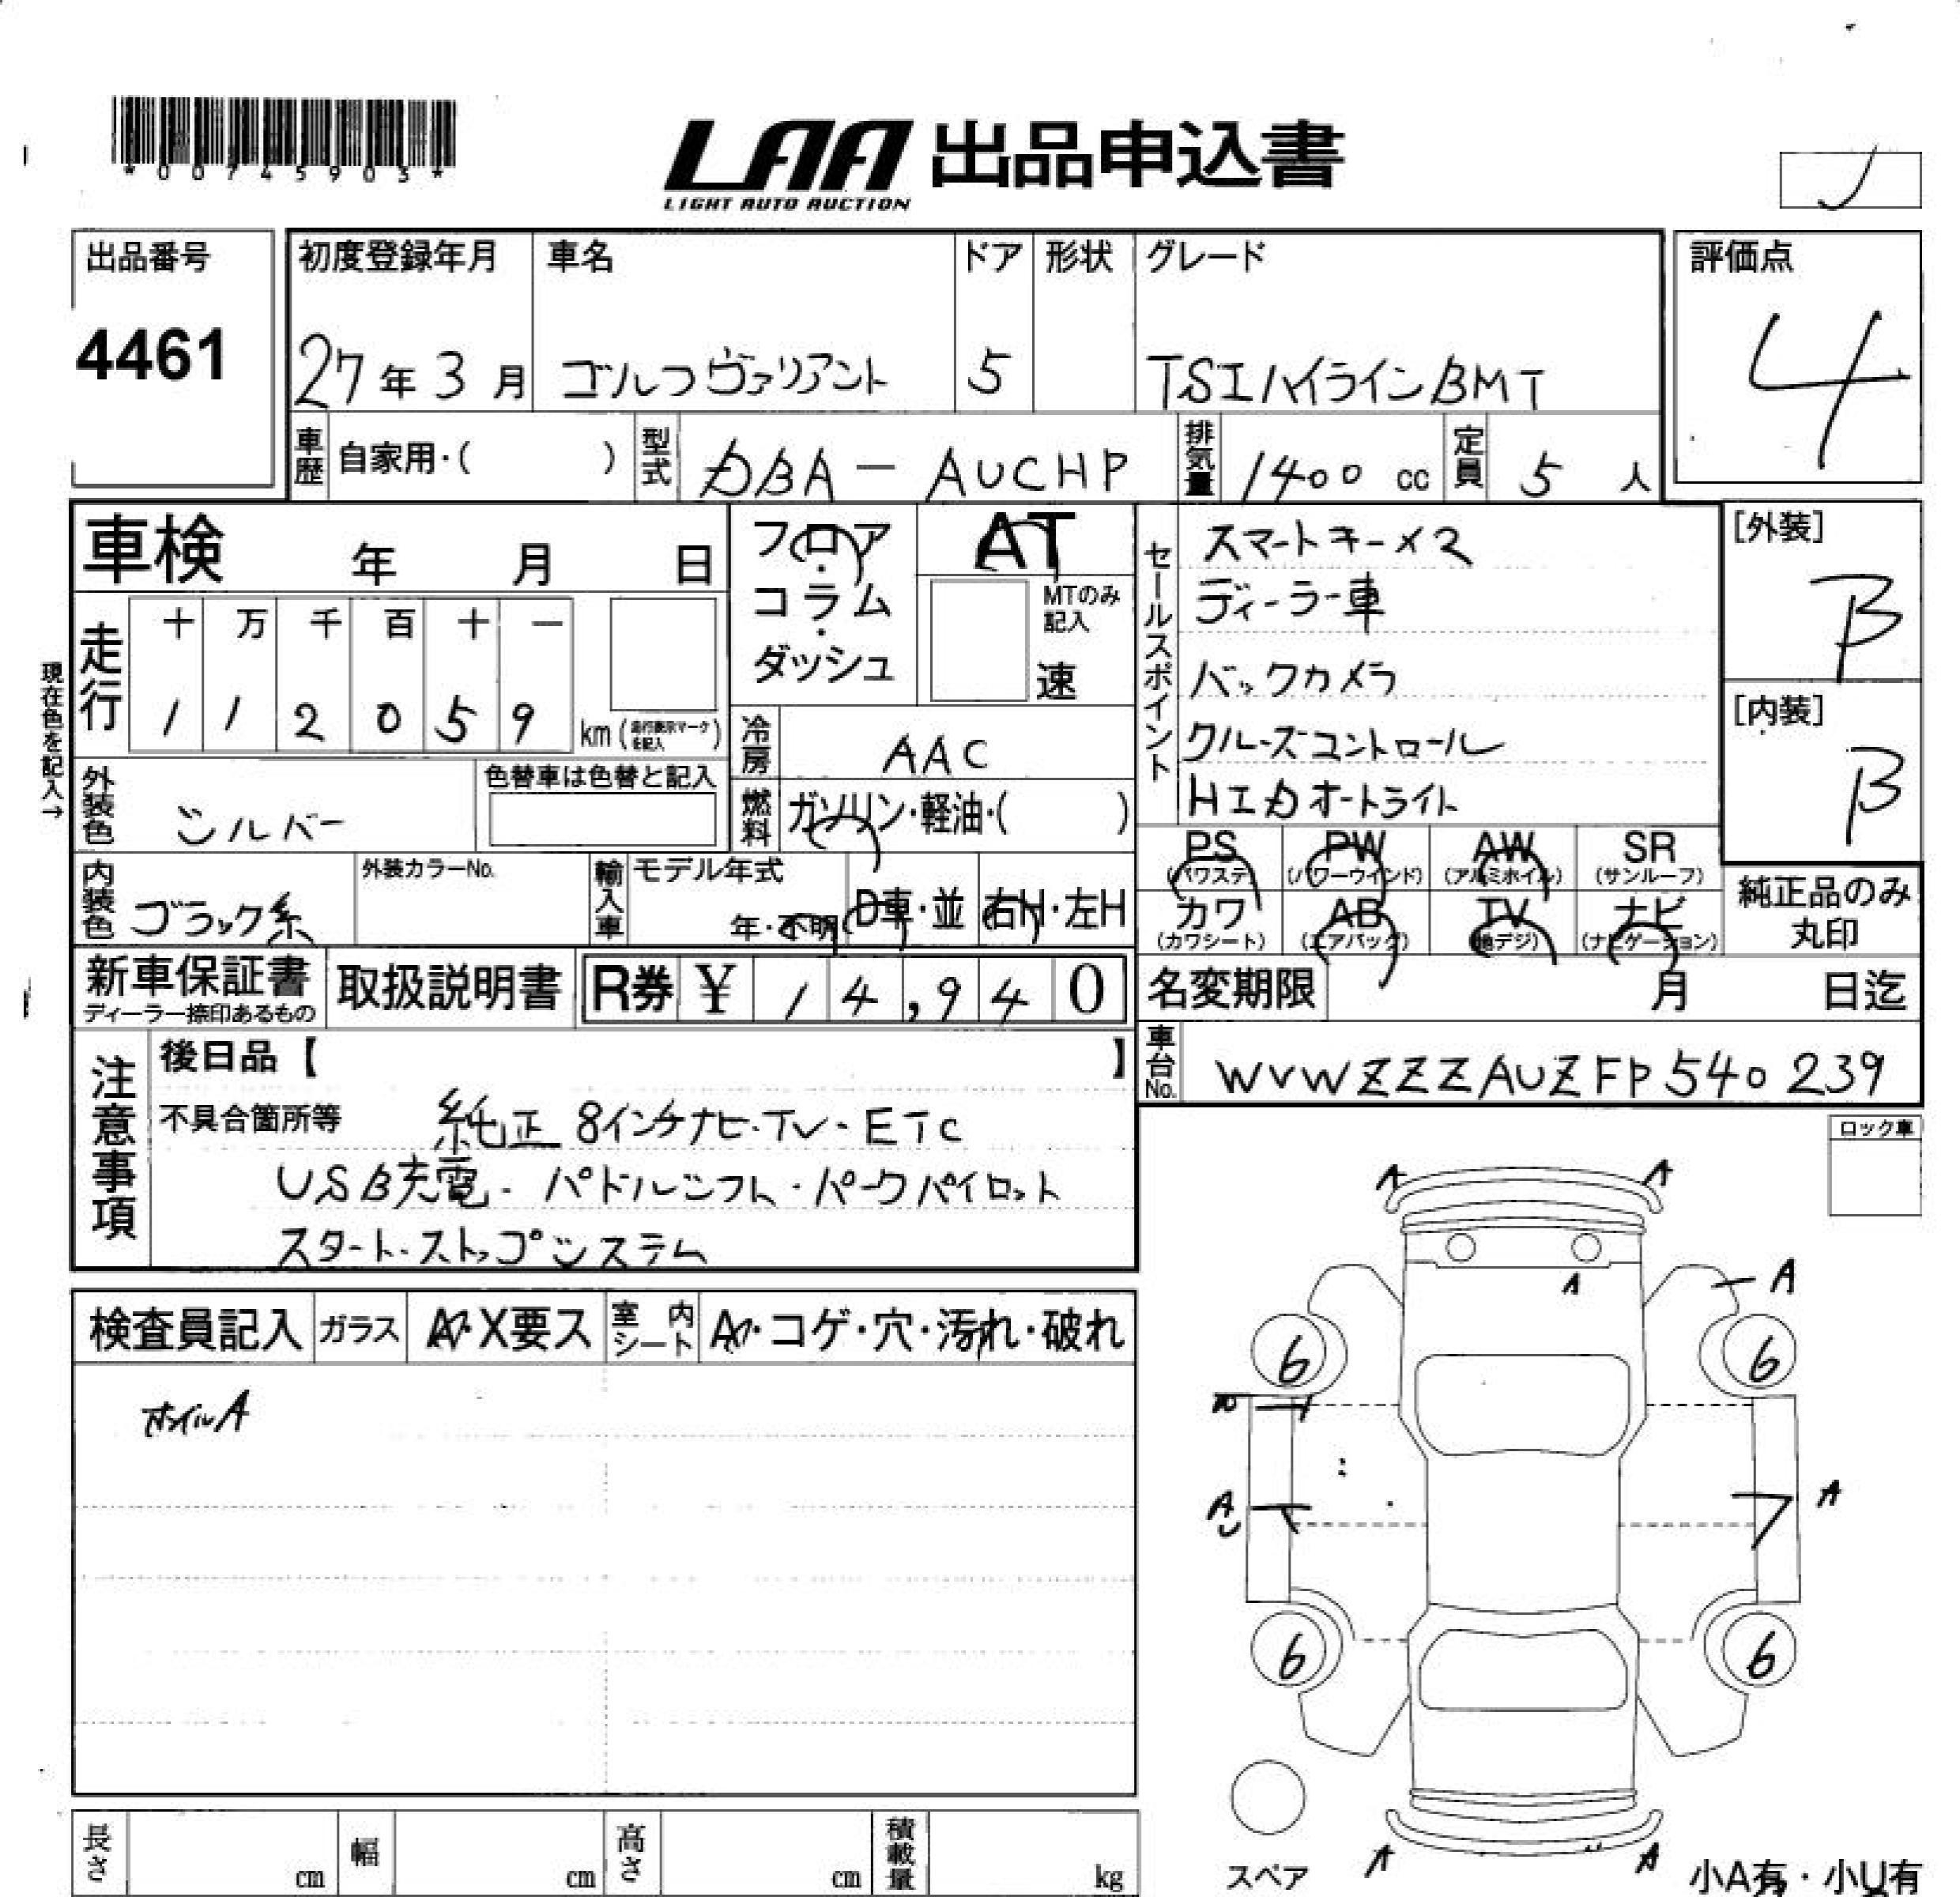 *00745903*
LAA 出品申込書
LIGHT AUTO AUCTION
出品番号
4461
初度登録年月 車名 ドア 形状 グレード
27年3月 ゴルフヴァリアント 5 TSIハイラインBMT
評価点
4
車歴 自家用・( ) 型式 DBA-AUCHP 排気量 1400 cc 定員 5 人
車検 年 月 日
フロア・コラム・ダッシュ
AT
MTのみ記入
速
現在色を記入→
走行 十 万 千 百 十 一
1 1 2 0 5 9 km (走行表示マークを記入)
冷房 AAC
外装色 シルバー 色替車は色替と記入
燃料 ガソリン・軽油・( )
内装色 ブラック系 外装カラーNo. 輸入車 モデル年式 年・不明 D車・並 右H・左H
セールスポイント
スマートキーメ2
ディーラー車
バックカメラ
クルーズコントロール
HIDオートライト
[外装]
B
[内装]
B
PS (パワステ) PW (パワーウインド) AW (アルミホイル) SR (サンルーフ)
カワ (カワシート) AB (エアバッグ) TV (地デジ) ナビ (ナビゲーション)
純正品のみ丸印
新車保証書 ディーラー捺印あるもの 取扱説明書 R券 ¥ 14,940
名変期限 月 日迄
車台No. WVWZZZAUZFP540239
注意事項
後日品【 】
不具合箇所等 純正8インチナビ・TV・ETC
USB充電・パドルシフト・パークパイロット
スタート・ストップシステム
検査員記入 ガラス A・X要ス 室内シート A・コゲ・穴・汚れ・破れ
ホイルA
ロック車
A A
A A
6 6
A
A
6 6
スペア A A 小A有・小U有
長さ cm 幅 cm 高さ cm 積載量 kg